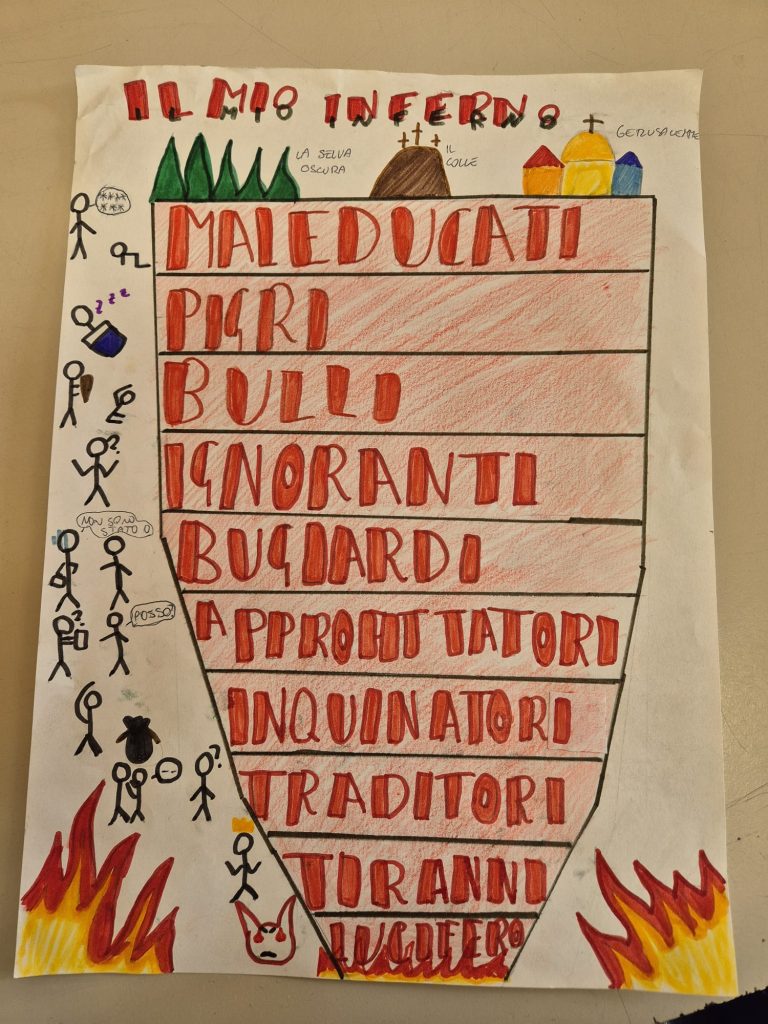 IL MIO INFERNO
LA SELVA
OSCURA
IL
COLLE
GERUSALEMME
MALEDUCATI
PIGRI
zzz
BULLI
?
IGNORANTI
NON SONO
STATO IO
BUGIARDI
?
POSSO?
APPROFITTATORI
INQUINATORI
...
?
TRADITORI
TIRANNI
LUCIFERO